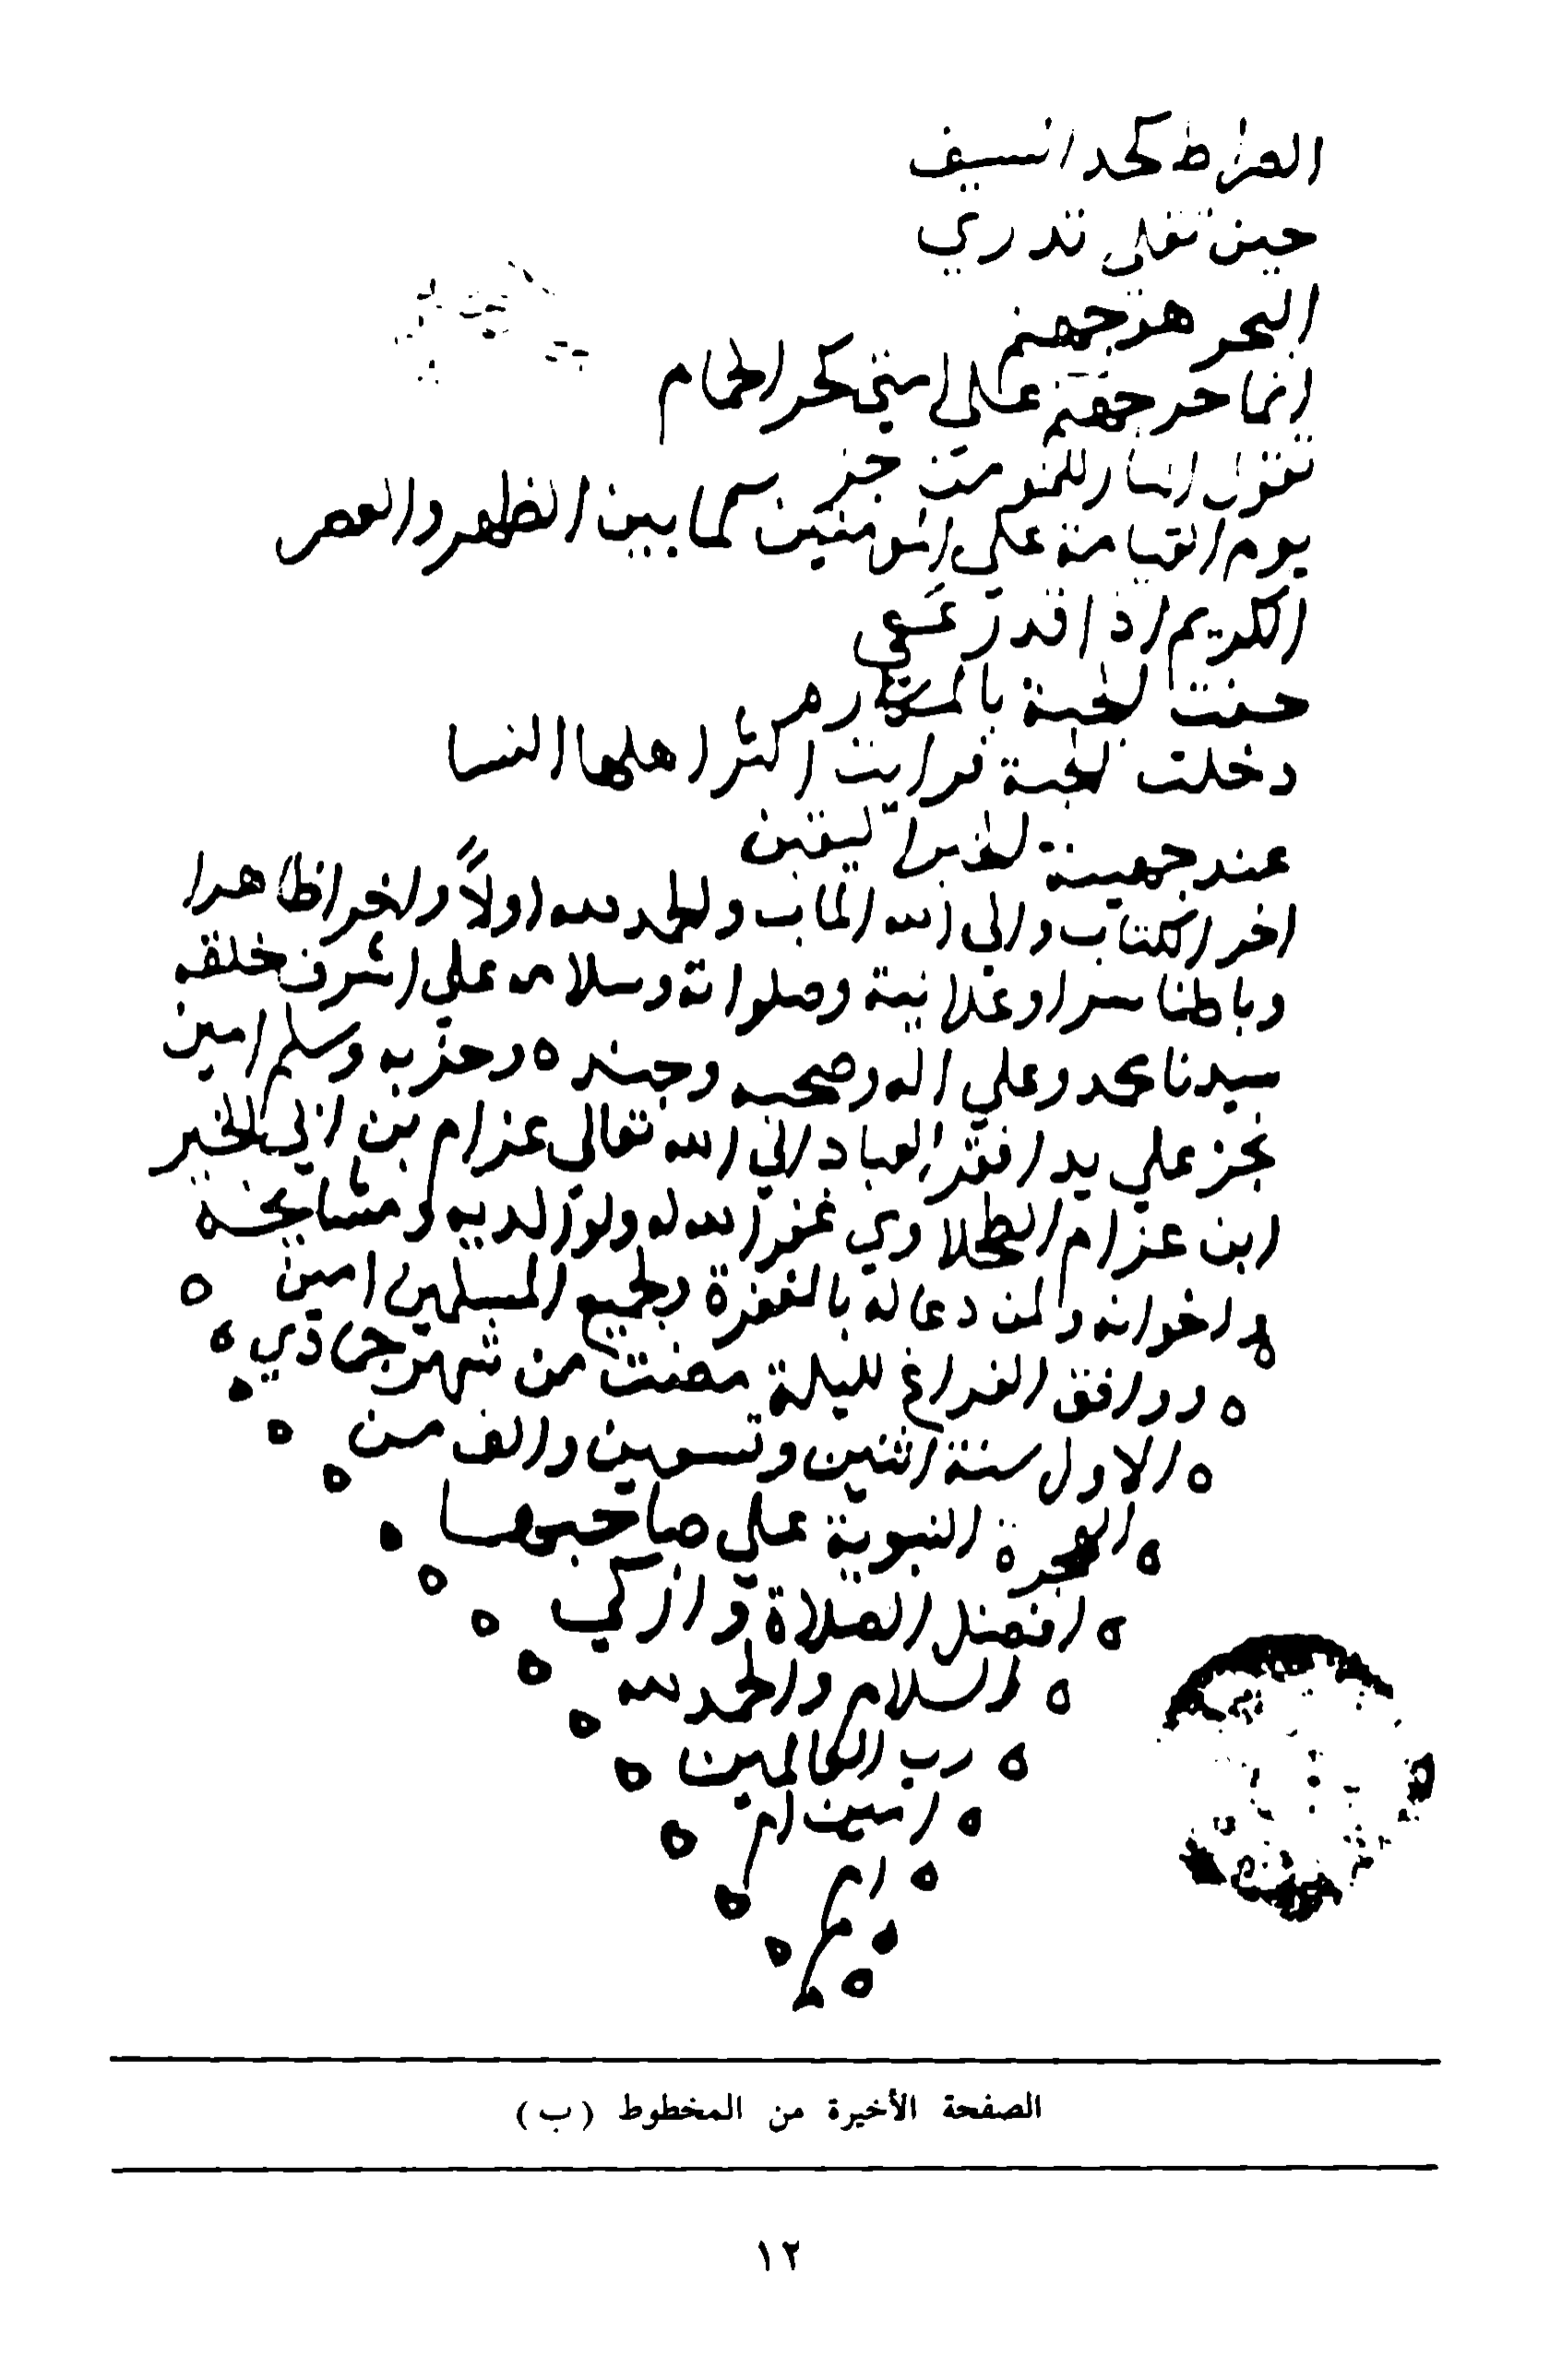 الصراط كحد السيف
حين تقلي تدري
البحر هو جهنم
انما حر جهنم علي امتي كحر الحمام
تقول النار للمومن جز
يوم القيامة علي المومنين كما بين الظهر والعصر
الكريم اذا قدر عفي
حفت الجنة بالمكاره
دخلت الجنة فرايت اكثر اهلها النسا
عند جهينة الخبر اليقين
اخر الكتاب والي الله الماب والحمد لله اولاً واخر اظاهرا
وباطنا سرا وعلانية وصلواته وسلامه علي اشرف خلقه
سيدنا محمد وعلي اله وصحبه وجنده وحزبه وسلم امين
نجز علي يد افقر العباد الي الله تعالي عزام بن ابي الخير
ابن عزام الطحلاوي غفر الله له ولوالديه ومشايخه
واخوانه ولمن دعا له بالمغفرة ولجميع المسلمين امين
ووافق الفراغ لليلة مضت من شهر جمادي
الاول سنة اثنين وتسعين والف من
الهجرة النبوية علي صاحبها
افضل الصلاة وازكي
السلام والحمد لله
رب العالمين
امين ام
ام
م
الصفحة الأخيرة من المخطوط (ب)
١٢